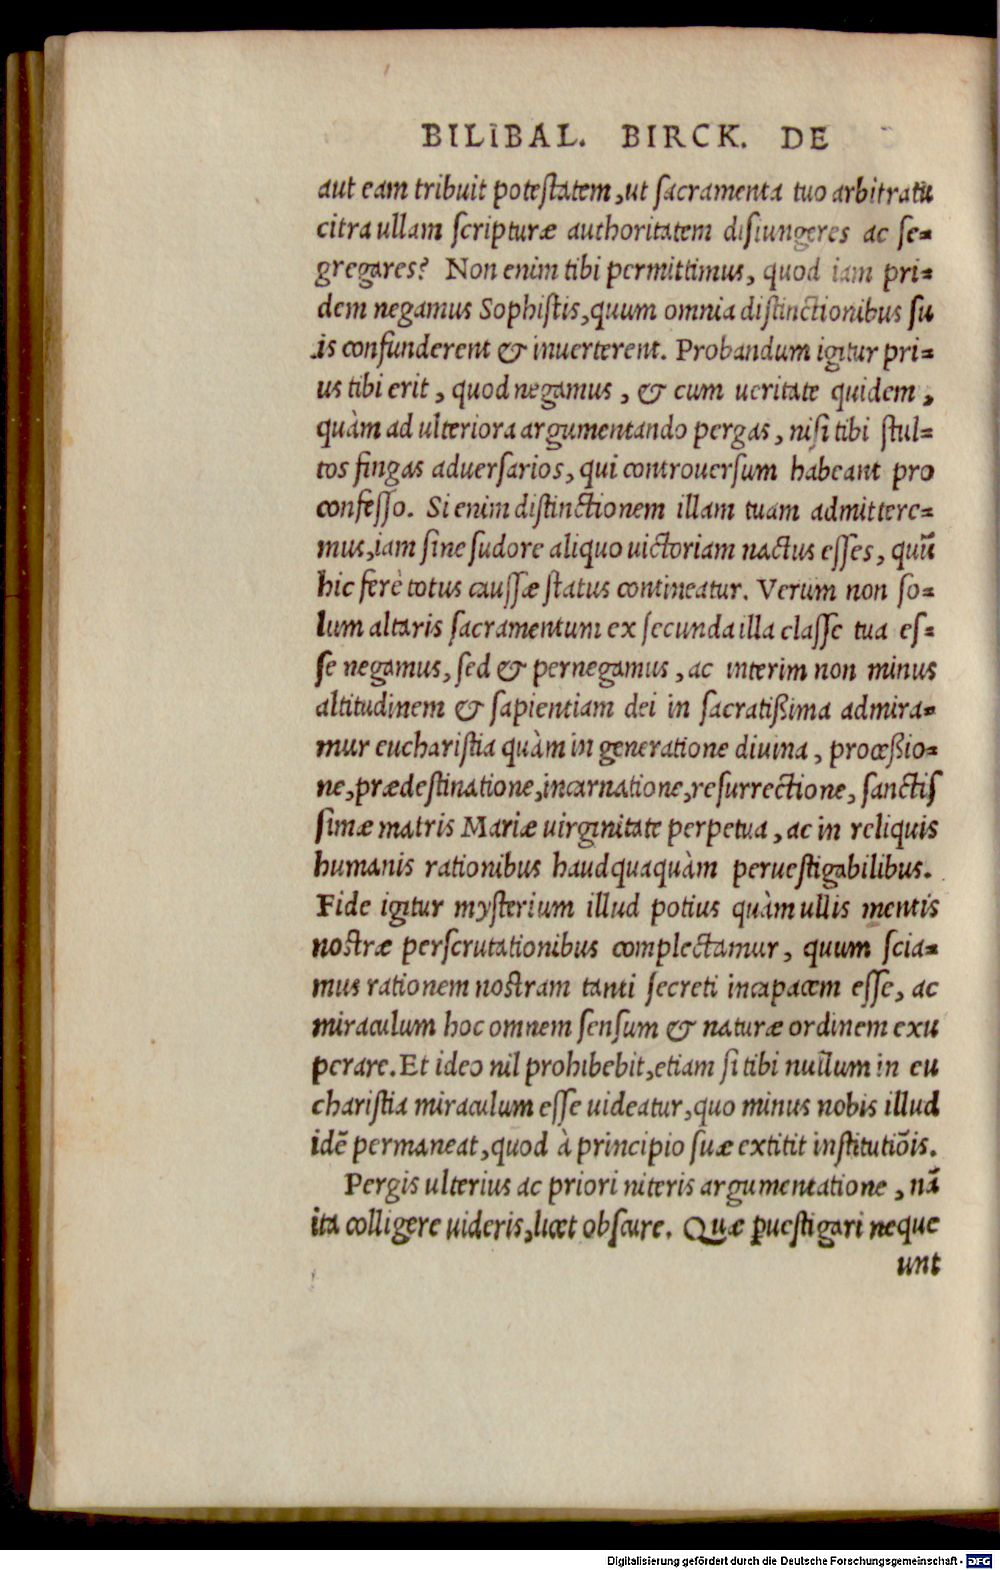 BILIBAL. BIRCK. DE
aut eam tribuit potestatem, ut sacramenta tuo arbitratu
citra ullam scripturæ authoritatem disiungeres ac se-
gregares? Non enim tibi permittimus, quod iam pri-
dem negamus Sophistis, quum omnia distinctionibus su
is confunderent & inuerterent. Probandum igitur pri-
us tibi erit, quod negamus, & cum ueritate quidem,
quàm ad ulteriora argumentando pergas, nisi tibi stul-
tos fingas aduersarios, qui controuersum habeant pro
confesso. Si enim distinctionem illam tuam admittere-
mus, iam sine sudore aliquo uictoriam nactus esses, quũ
hic ferè totus caussæ status contineatur. Verum non so-
lum altaris sacramentum ex secunda illa classe tua es-
se negamus, sed & pernegamus, ac interim non minus
altitudinem & sapientiam dei in sacratißima admira-
mur eucharistia quàm in generatione diuina, proceßio-
ne, prædestinatione, incarnatione, resurrectione, sanctis
simæ matris Mariæ uirginitate perpetua, ac in reliquis
humanis rationibus haudquaquàm peruestigabilibus.
Fide igitur mysterium illud potius quàm ullis mentis
nostræ perscrutationibus complectamur, quum scia-
mus rationem nostram tanti secreti incapacem esse, ac
miraculum hoc omnem sensum & naturæ ordinem exu
perare. Et ideo nil prohibebit, etiam si tibi nullum in eu
charistia miraculum esse uideatur, quo minus nobis illud
idẽ permaneat, quod à principio suæ extitit institutiõis.
Pergis ulterius ac priori niteris argumentatione, nã
ita colligere uideris, licet obscure. Quæ ꝑuestigari neque
unt
Digitalisierung gefördert durch die Deutsche Forschungsgemeinschaft - DFG